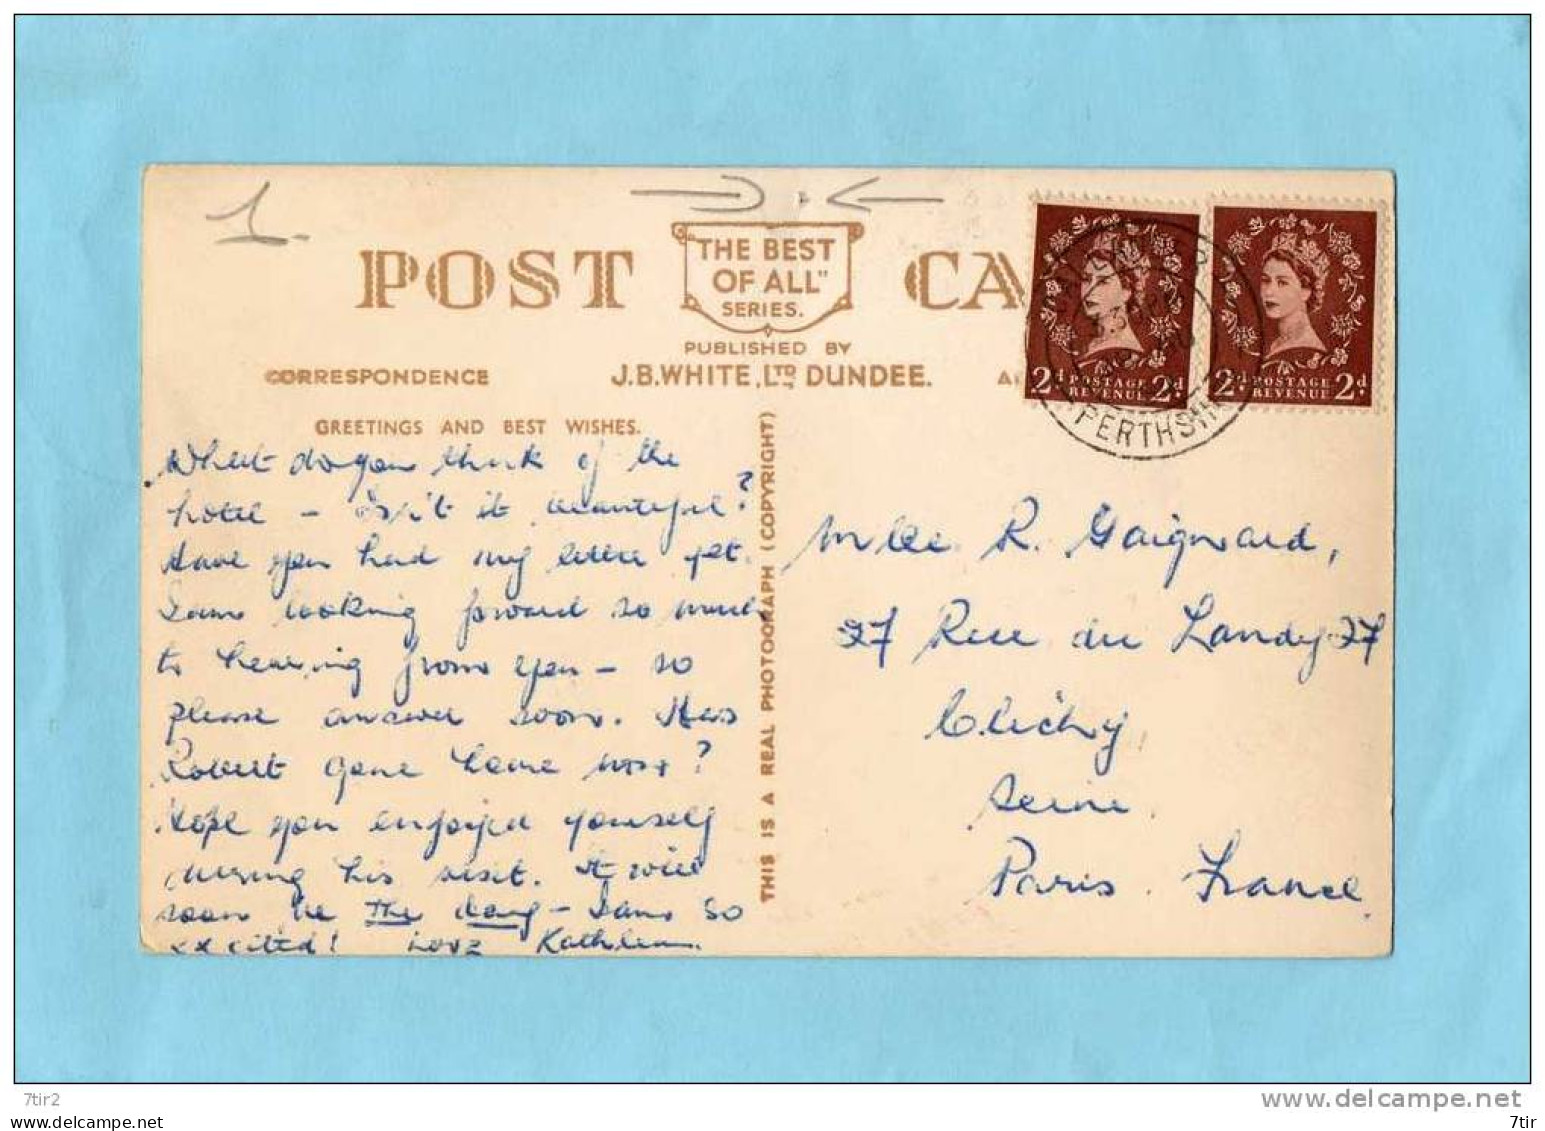 1.
POST CA
"THE BEST
OF ALL"
SERIES.
PUBLISHED BY
CORRESPONDENCE
J.B.WHITE, LTD DUNDEE.
GREETINGS AND BEST WISHES.
What do you think of the
hotel – Isn't it beautiful?
Have you had my letter yet.
I am looking forward so much
to hearing from you – so
please answer soon. Has
Robert gone home now?
Hope you enjoyed yourself
during his visit. It will
soon be The day – I am so
excited! Love Kathleen.
THIS IS A REAL PHOTOGRAPH (COPYRIGHT)
2d POSTAGE 2d
REVENUE
2d POSTAGE 2d
REVENUE
PERTHSHIRE
Mlle R. Gaignard,
27 Rue du Landy 27
Clichy,
Seine.
Paris. France.
7tir2
delcampe.net
https://www.delcampe.net
7tir